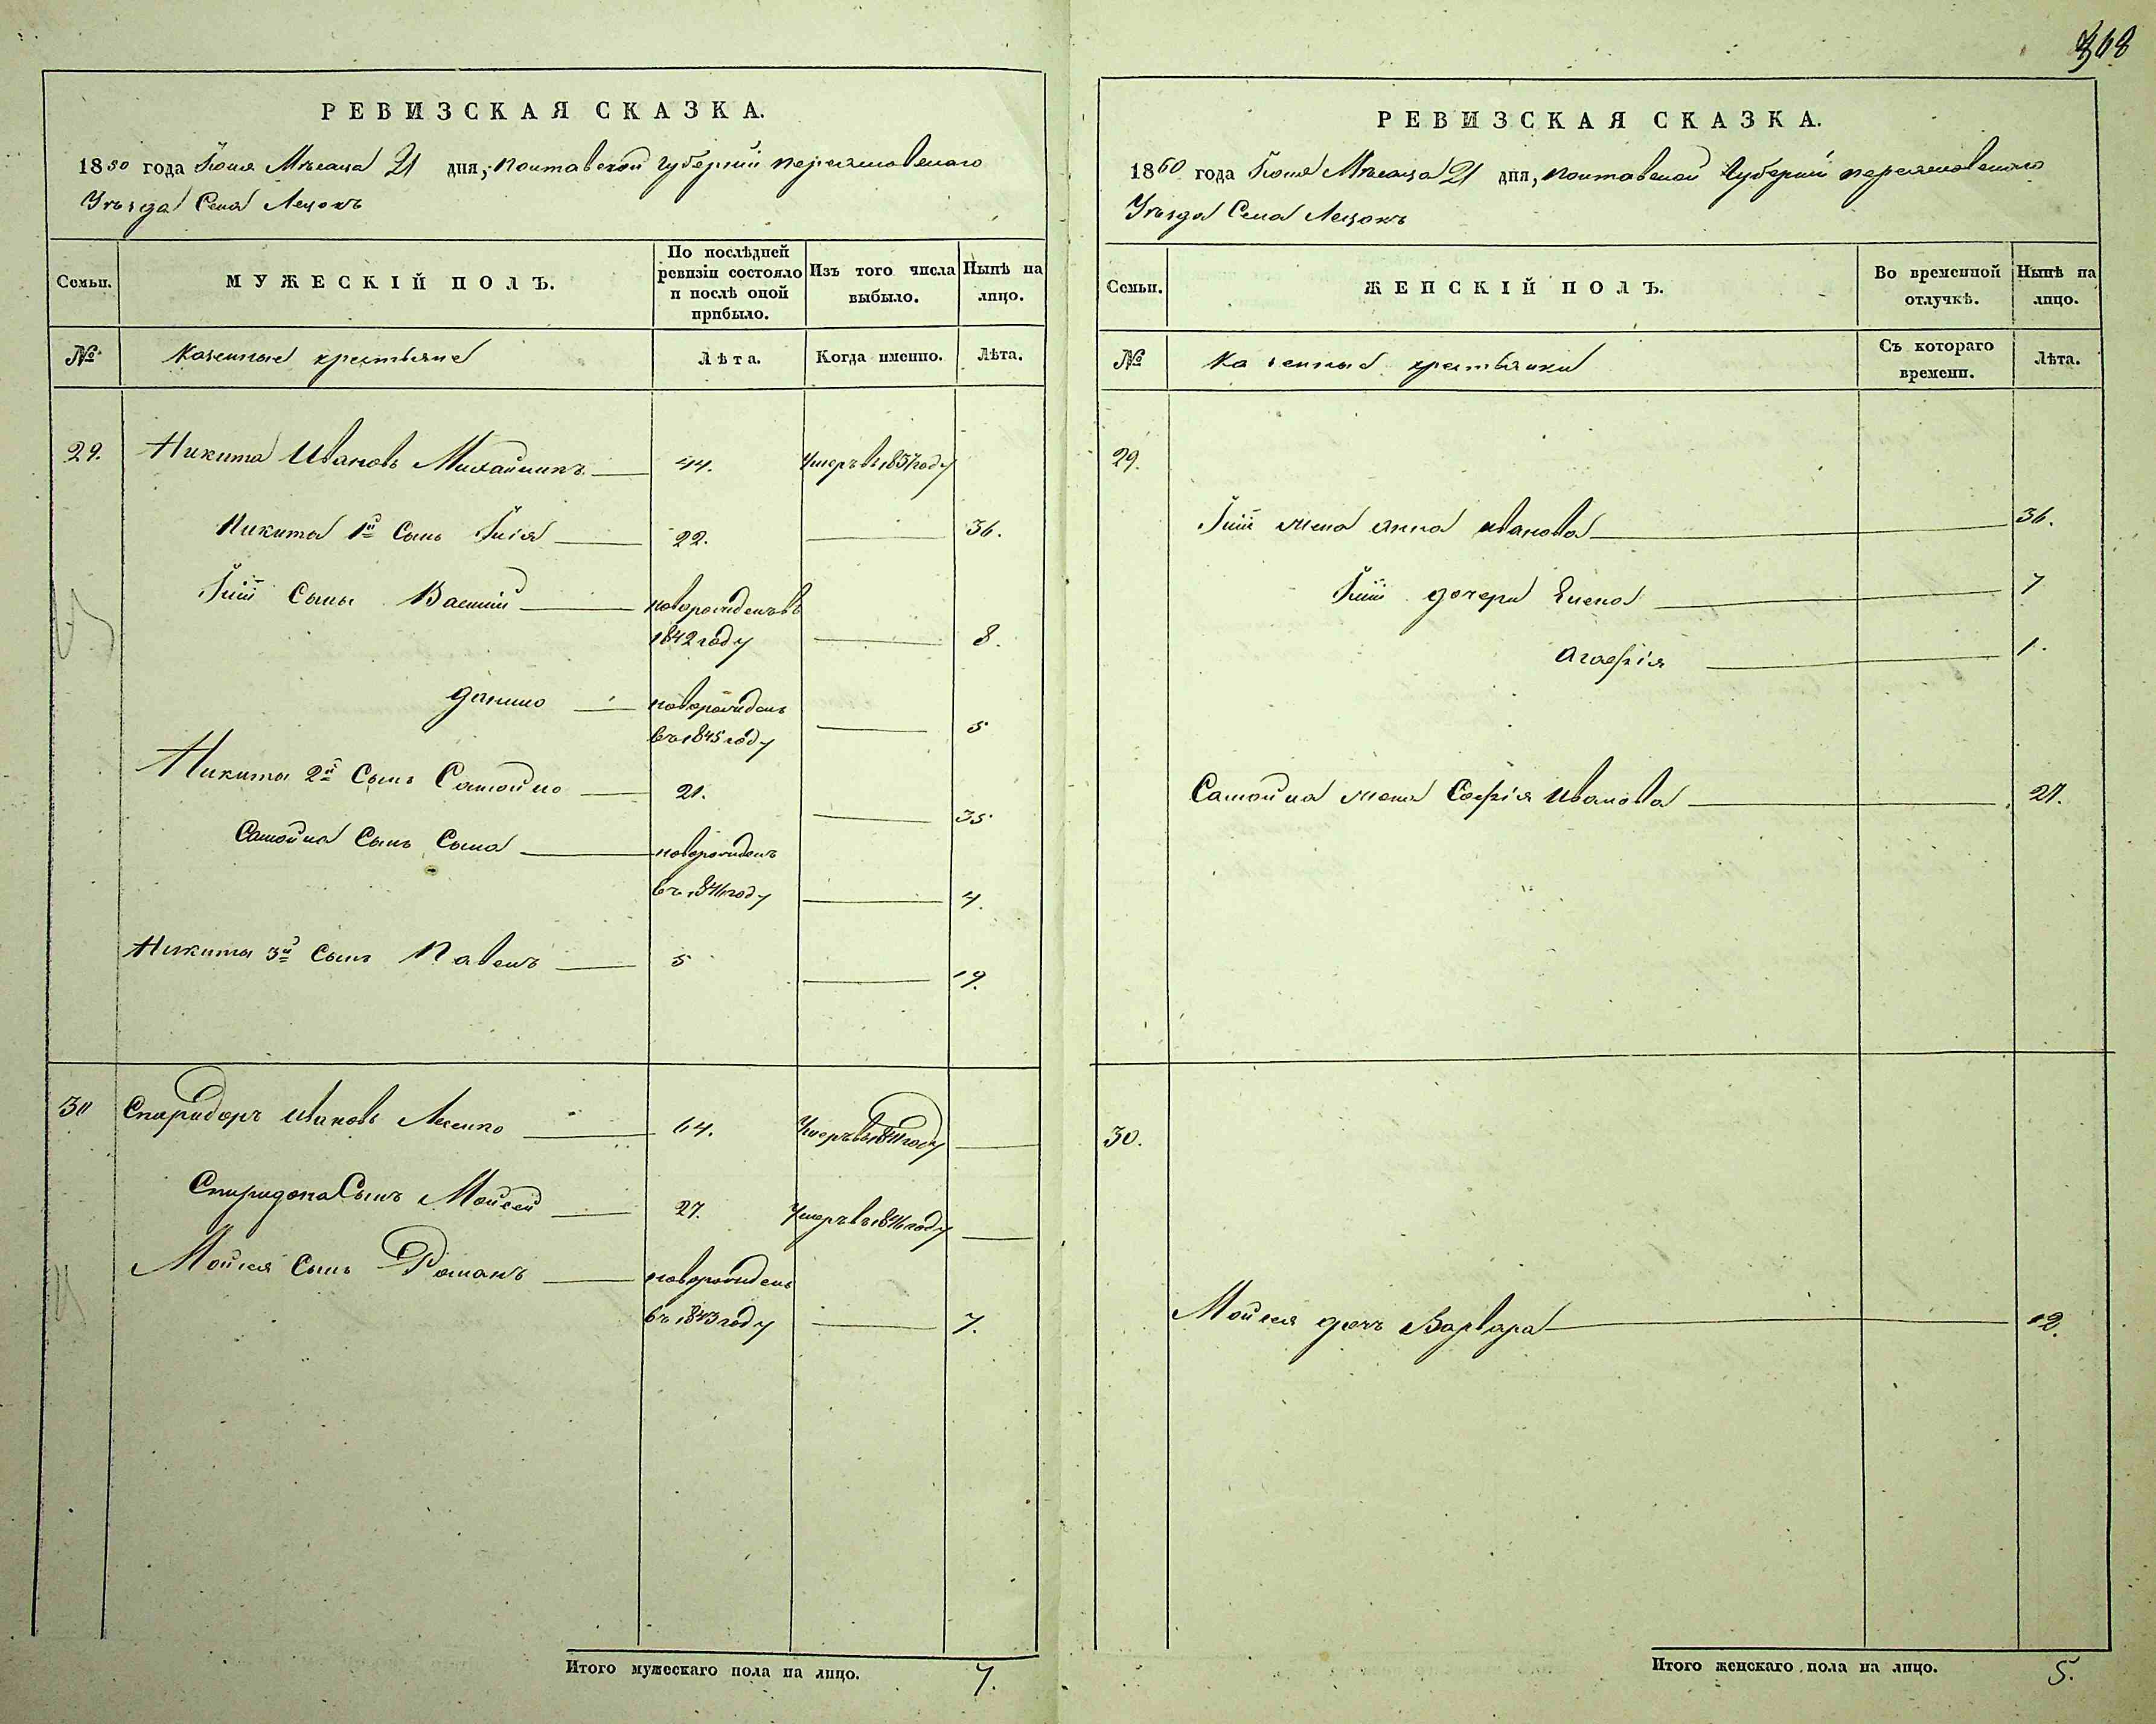 368
РЕВИЗСКАЯ СКАЗКА.
1850 года Іюня Мѣсяца 21 дня, Полтавской Губерніи Переяславскаго
Уѣзда Села Лецокъ
Семьи.
МУЖЕСКІЙ ПОЛЪ.
По послѣдней ревизіи состояло и послѣ оной прибыло.
Изъ того числа выбыло.
Нынѣ на лицо.
№
Казенные крестьяне
Лѣта.
Когда именно.
Лѣта.
29. Никита Ивановъ Михайликъ 44. Умеръ въ 1837 году
Никиты 1й Сынъ Илія 22. 36.
Іліи Сыны Василій новорожденъ въ
1842 году 8.
Данило новорожденъ
въ 1845 году 5
Никиты 2й Сынъ Самойло 21. 35
Самойла Сынъ Сыла новорожденъ
въ 1846 году 4.
Никиты 3й Сынъ Павелъ 5 19.
30 Спиридонъ Ивановъ 64. Умеръ въ году
Спиридона Сынъ Мойсей 27. Умеръ въ 1846 году
Мойсея Сынъ Романъ новорожденъ
въ 1843 году 7.
Итого мужескаго пола на лицо. 7.
РЕВИЗСКАЯ СКАЗКА.
1850 года Іюня Мѣсяца 21 дня, Полтавской Губерніи Переяславскаго
Уѣзда Села Лецокъ
Семьи.
ЖЕНСКІЙ ПОЛЪ.
Во временной отлучкѣ.
Нынѣ на лицо.
№
Казенные крестьянки
Съ котораго времени.
Лѣта.
29.
Іліи жена Анна Иванова 36.
Іліи дочери Елена 7
Агафія 1.
Самойла жена Софія Иванова 27.
30.
Мойсея дочь Варвара 12.
Итого женскаго пола на лицо. 5.